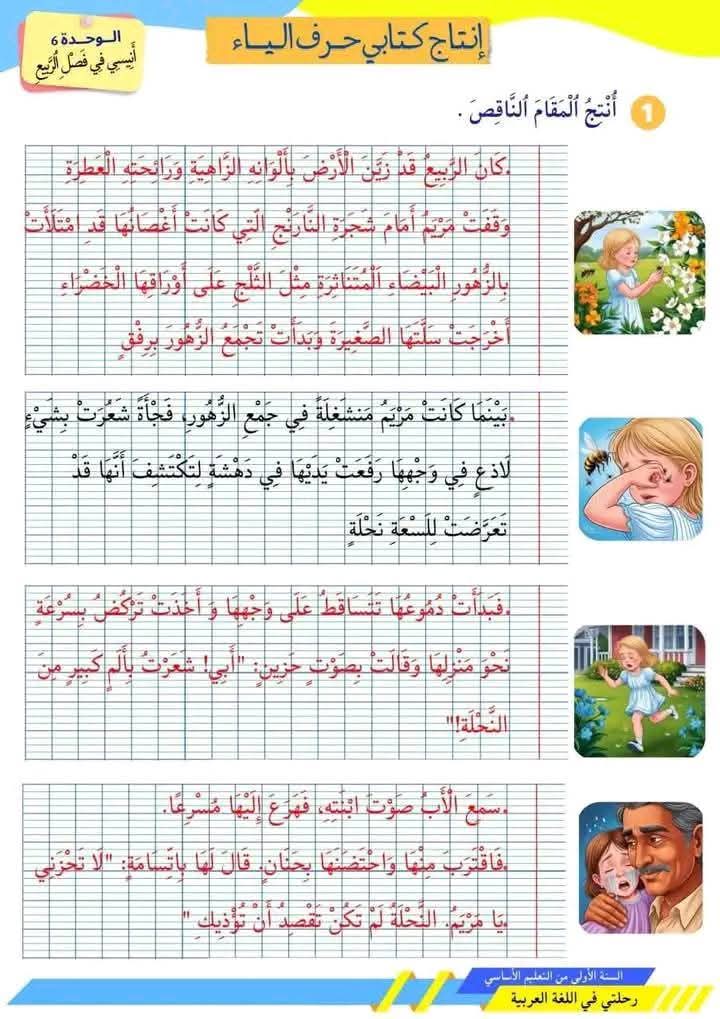 إنتاج كتابي حرف الياء
الوحدة 6
أَنِيسِي فِي فَصْلِ الرَّبِيعِ
1 أُنْتِجُ الْمَقَامَ النَّاقِصَ .
.كَانَ الرَّبِيعُ قَدْ زَيَّنَ الْأَرْضَ بِأَلْوَانِهِ الزَّاهِيَةِ وَرَائِحَتِهِ الْعَطِرَةِ
وَقَفَتْ مَرْيَمُ أَمَامَ شَجَرَةِ النَّارَنْجِ الَّتِي كَانَتْ أَغْصَانُهَا قَدِ امْتَلَأَتْ
بِالزُّهُورِ الْبَيْضَاءِ الْمُتَنَاثِرَةِ مِثْلَ الثَّلْجِ عَلَى أَوْرَاقِهَا الْخَضْرَاءِ
أَخْرَجَتْ سَلَّتَهَا الصَّغِيرَةَ وَبَدَأَتْ تَجْمَعُ الزُّهُورَ بِرِفْقٍ
.بَيْنَمَا كَانَتْ مَرْيَمُ مَنشَغِلَةً فِي جَمْعِ الزُّهُورِ، فَجْأَةً شَعُرَتْ بِشَيْءٍ
لَاذِعٍ فِي وَجْهِهَا رَفَعَتْ يَدَيْهَا فِي دَهْشَةٍ لِتَكْتَشِفَ أَنَّهَا قَدْ
تَعَرَّضَتْ لِلَسْعَةِ نَحْلَةٍ
.فَبَدَأَتْ دُمُوعُهَا تَتَسَاقَطُ عَلَى وَجْهِهَا وَ أَخَذَتْ تَرْكُضُ بِسُرْعَةٍ
نَحْوَ مَنْزِلِهَا وَقَالَتْ بِصَوْتٍ حَزِينٍ: "أَبِي! شَعَرْتُ بِأَلَمٍ كَبِيرٍ مِنَ
النَّحْلَةِ!"
.سَمِعَ الْأَبُ صَوْتَ ابْنَتِهِ، فَهَرَعَ إِلَيْهَا مُسْرِعًا.
.فَاقْتَرَبَ مِنْهَا وَاحْتَضَنَهَا بِحَنَانٍ. قَالَ لَهَا بِاتِّسَامَةٍ: "لَا تَحْزَنِي
.يَا مَرْيَمُ. النَّحْلَةُ لَمْ تَكُنْ تَقْصِدُ أَنْ تُؤْذِيكِ "
السنة الأولى من التعليم الأساسي
رحلتي في اللغة العربية